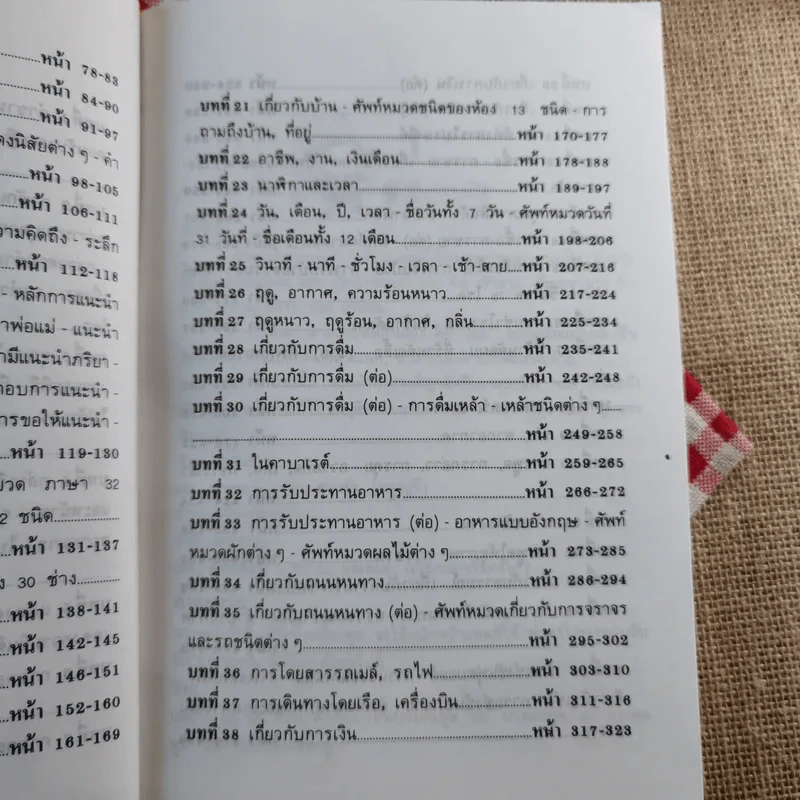 หน้า 78-83
หน้า 84-90
หน้า 91-97
งนิสัยต่าง ๆ - คำ
หน้า 98-105
หน้า 106-111
วามคิดถึง - ระลึก
หน้า 112-118
- หลักการแนะนำ
พ่อแม่ - แนะนำ
มีแนะนำภริยา -
อบการแนะนำ -
ารขอให้แนะนำ -
หน้า 119-130
วด ภาษา 32
2 ชนิด
หน้า 131-137
ง 30 ช่าง
หน้า 138-141
หน้า 142-145
หน้า 146-151
หน้า 152-160
หน้า 161-169
บทที่ 21 เกี่ยวกับบ้าน - ศัพท์หมวดชนิดของห้อง 13 ชนิด - การ
ถามถึงบ้าน, ที่อยู่ หน้า 170-177
บทที่ 22 อาชีพ, งาน, เงินเดือน หน้า 178-188
บทที่ 23 นาฬิกาและเวลา หน้า 189-197
บทที่ 24 วัน, เดือน, ปี, เวลา - ชื่อวันทั้ง 7 วัน - ศัพท์หมวดวันที่
31 วันที่ - ชื่อเดือนทั้ง 12 เดือน หน้า 198-206
บทที่ 25 วินาที - นาที - ชั่วโมง - เวลา - เช้า-สาย หน้า 207-216
บทที่ 26 ฤดู, อากาศ, ความร้อนหนาว หน้า 217-224
บทที่ 27 ฤดูหนาว, ฤดูร้อน, อากาศ, กลิ่น หน้า 225-234
บทที่ 28 เกี่ยวกับการดื่ม หน้า 235-241
บทที่ 29 เกี่ยวกับการดื่ม (ต่อ) หน้า 242-248
บทที่ 30 เกี่ยวกับการดื่ม (ต่อ) - การดื่มเหล้า - เหล้าชนิดต่าง ๆ
หน้า 249-258
บทที่ 31 ในคาบาเรต์ หน้า 259-265
บทที่ 32 การรับประทานอาหาร หน้า 266-272
บทที่ 33 การรับประทานอาหาร (ต่อ) - อาหารแบบอังกฤษ - ศัพท์
หมวดผักต่าง ๆ - ศัพท์หมวดผลไม้ต่าง ๆ หน้า 273-285
บทที่ 34 เกี่ยวกับถนนหนทาง หน้า 286-294
บทที่ 35 เกี่ยวกับถนนหนทาง (ต่อ) - ศัพท์หมวดเกี่ยวกับการจราจร
และรถชนิดต่าง ๆ หน้า 295-302
บทที่ 36 การโดยสารรถเมล์, รถไฟ หน้า 303-310
บทที่ 37 การเดินทางโดยเรือ, เครื่องบิน หน้า 311-316
บทที่ 38 เกี่ยวกับการเงิน หน้า 317-323